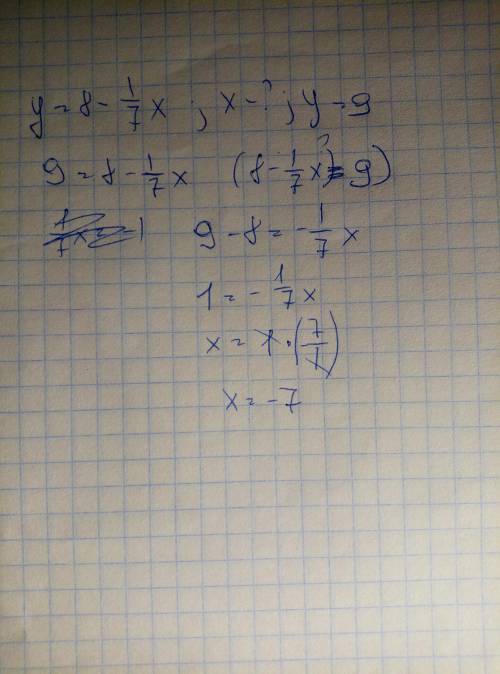 y = 8 - 1/7 x ; x - ? ; y = 9
9 = 8 - 1/7 x (8 - 1/7 x = 9)
9 - 8 = - 1/7 x
1 = - 1/7 x
x = 1 · (7/1)
x = -7